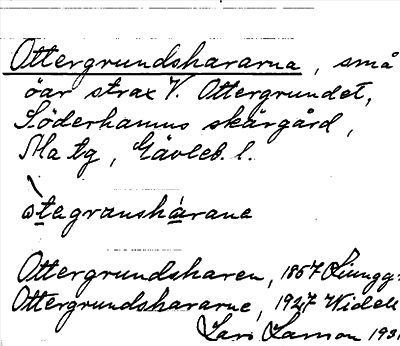 Ottergrundshararna, små
öar strax V. Ottergrundet,
Söderhamns skärgård,
Ala tg, Gävleb. l.
åtagranshárana
Ottergrundsharen, 1857 Ljungg
Ottergrundshararne, 1927 Widell
Lars Larson 193